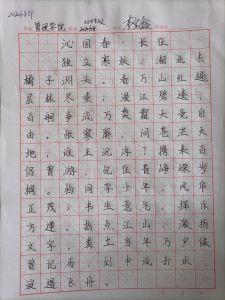 管理学院
沁园春 长沙
独立寒秋,湘北去
橘子洲头。看万山红遍
层林尽染;漫江碧透,
百舸争流。万类霜天竞自
由。怅寥廓,问苍茫大
地,谁主沉浮?携来百
侣曾游,忆往昔峥嵘岁
稠。恰同学少年,风华
正茂;书生意气,挥斥
方遒。指点江山,激扬
文字,粪土当年万户侯
曾记否,到中流击水,
浪遏飞舟。